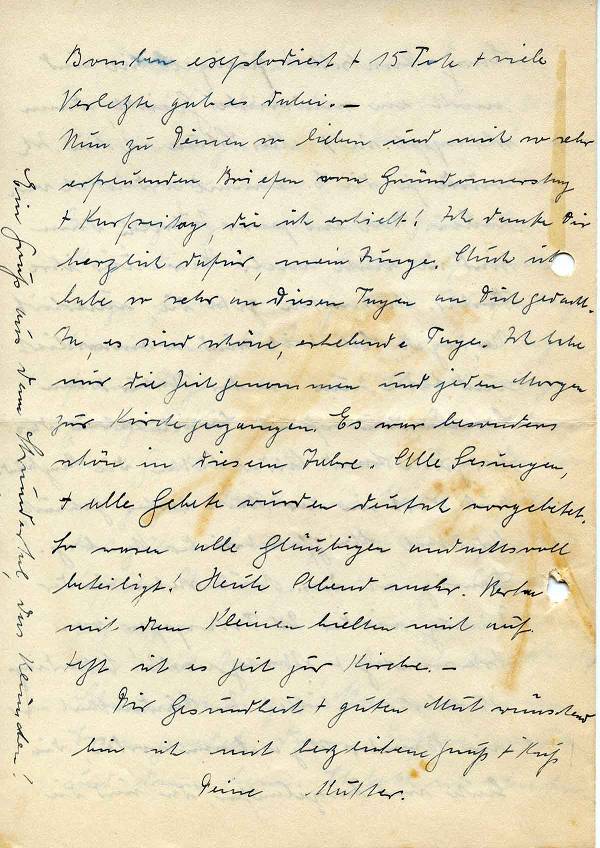 Bomben explodiert + 15 Tote + viele
Verletzte gab es dabei. –
Nun zu Deinen so lieben und mich so sehr
erfreuenden Briefen vom Gründonnerstag
+ Karfreitag, die ich erhielt! Ich danke Dir
herzlich dafür, mein Junge. Auch ich
habe so sehr an diesen Tagen an Dich gedacht.
Ja, es sind schöne, erhebende Tage. Ich habe
mir die Zeit genommen und jeden Morgen
zur Kirche gegangen. Es war besonders
schön in diesem Jahre. Alle Lesungen,
+ alle Gebete wurden deutsch vorgebetet.
So waren alle Gläubigen andachtsvoll
beteiligt! Heute Abend mehr.
mit dem Kleinen hielten mich auf.
Jetzt ist es Zeit zur Kirche. –
Dir Gesundheit + guten Mut wünschend
bin ich mit herzlichem Gruß + Kuß
Deine Mutter.
Ein Gruß aus dem das